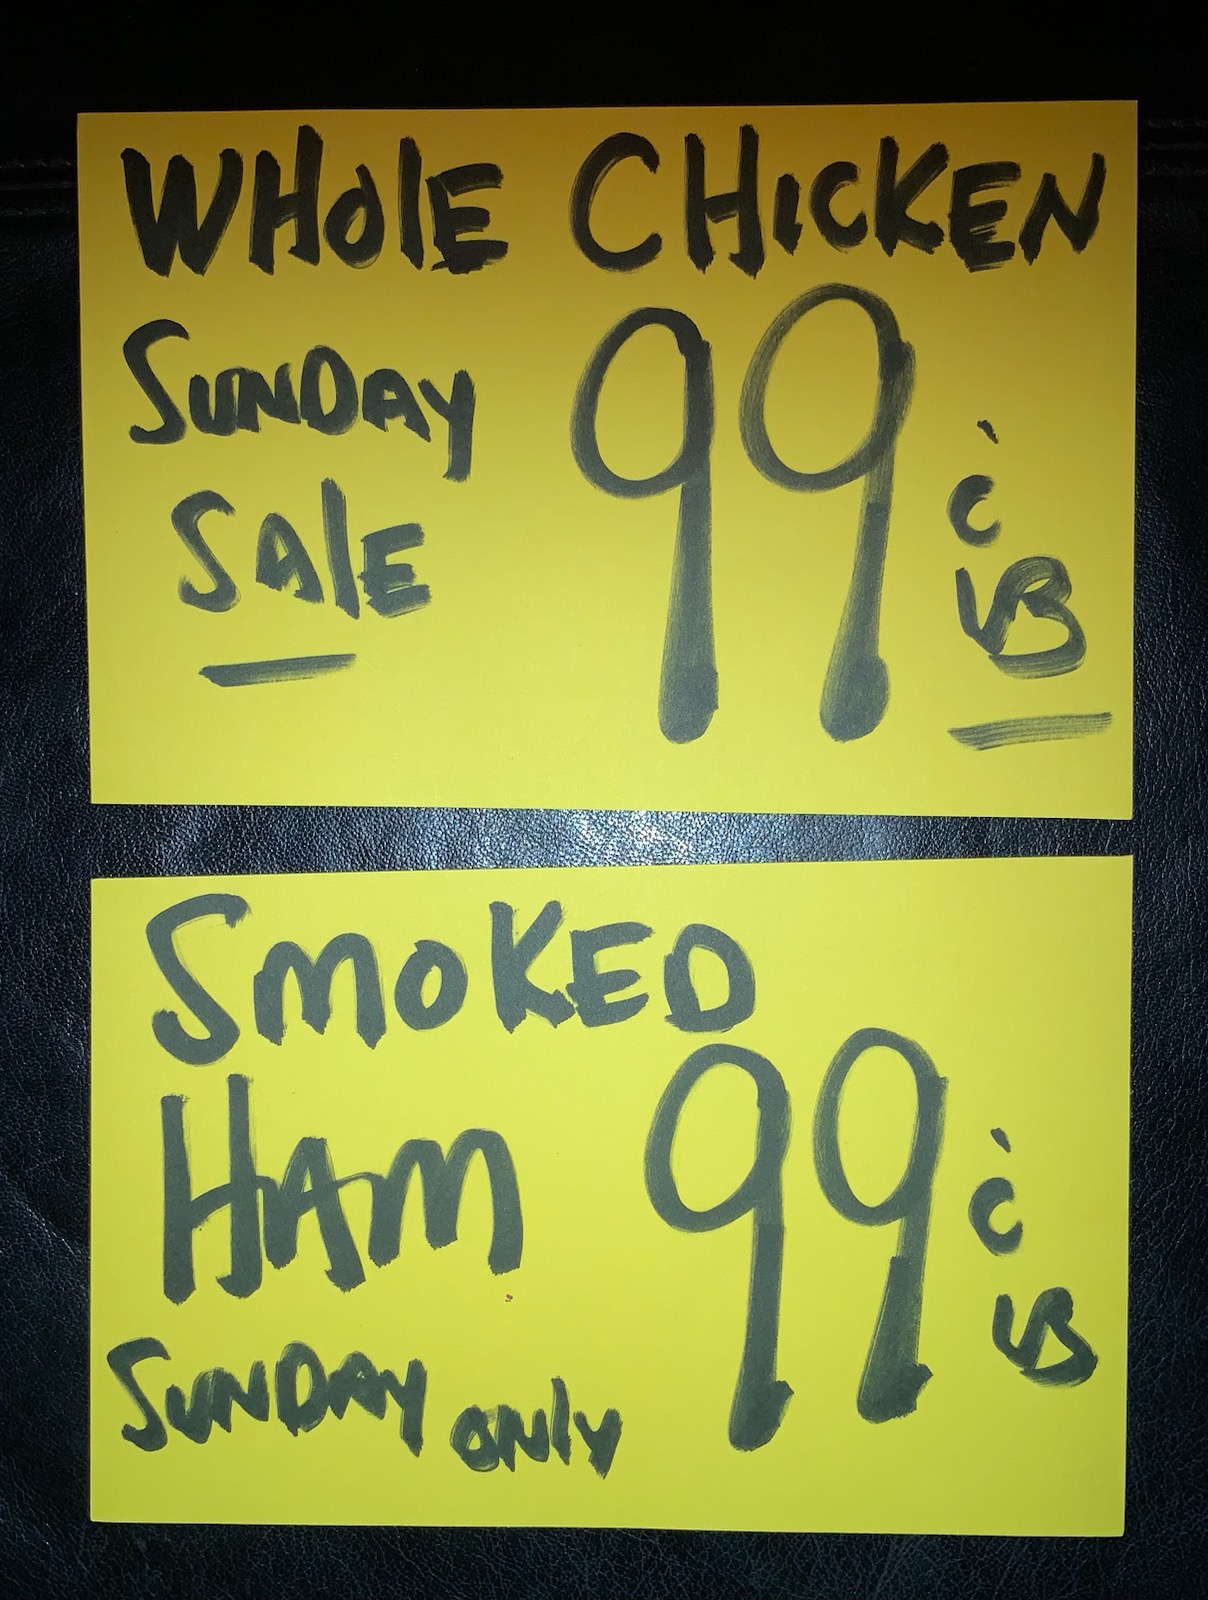 WHOLE CHICKEN
SUNDAY
SALE
99 ¢
LB
SMOKED
HAM
99 ¢
LB
SUNDAY ONLY